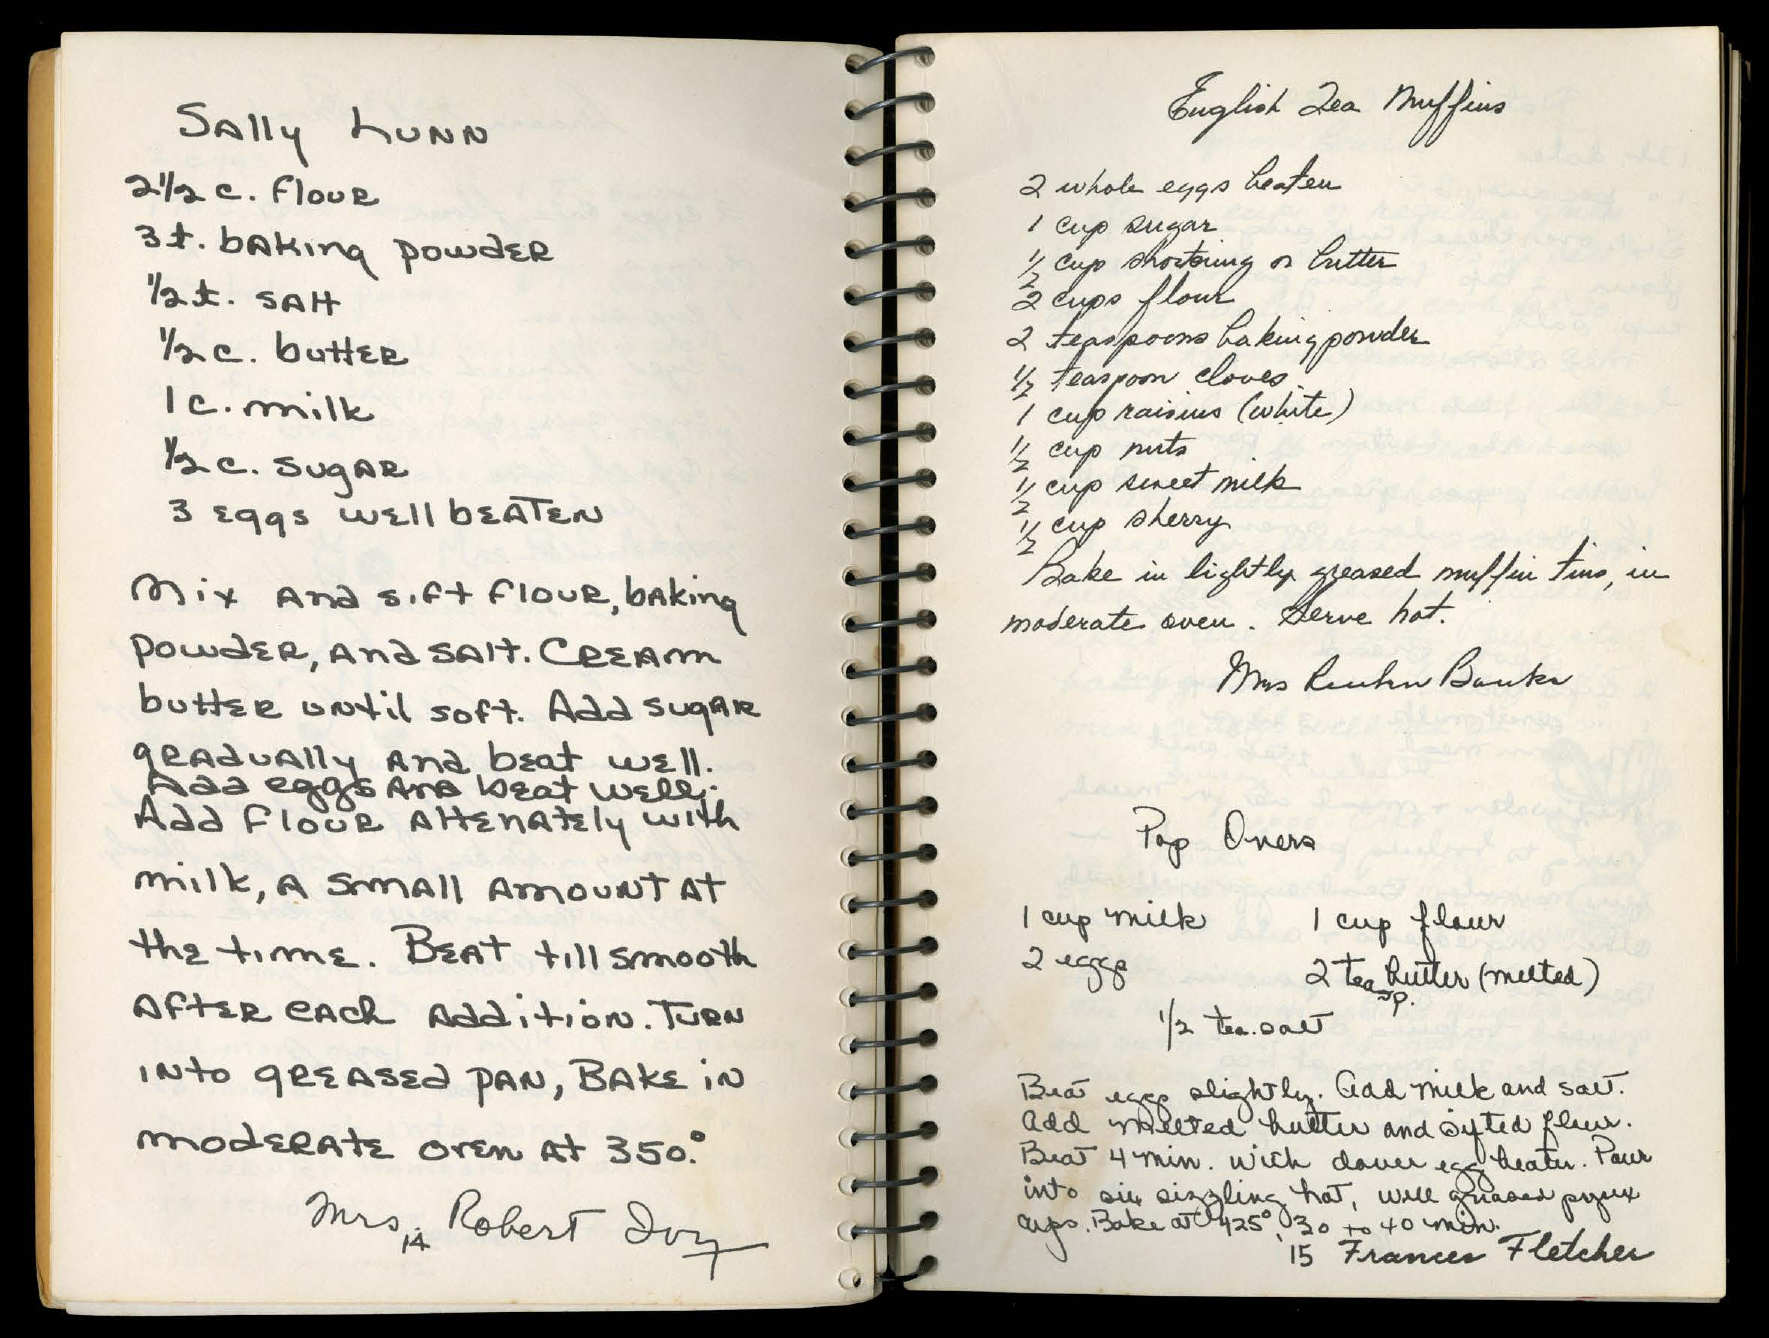 Sally Lunn
2 1/2 c. flour
3 t. baking powder
1/2 t. salt
1/2 c. butter
1 c. milk
1/2 c. sugar
3 eggs well beaten
Mix and sift flour, baking
powder, and salt. Cream
butter until soft. Add sugar
gradually and beat well.
Add eggs and beat well.
Add flour altenately with
milk, a small amount at
the time. Beat till smooth
after each addition. Turn
into greased pan, Bake in
moderate oven at 350.°
Mrs. Robert Ivy
14
English Tea Muffins
2 whole eggs beaten
1 cup sugar
1/2 cup shortning or butter
2 cups flour
2 teaspoons baking powder
1/2 teaspoon cloves
1 cup raisins (white)
1/2 cup nuts
1/2 cup sweet milk
1/2 cup sherry
Bake in lightly greased muffin tins, in
moderate oven. Serve hot.
Mrs Banks
Pop Overs
1 cup milk 1 cup flour
2 eggs 2 teasp. butter (melted)
1/2 tea. salt
Beat eggs slightly. Add milk and salt.
Add melted butter and sifted flour.
Beat 4 min. with dover egg beater. Pour
into six sizzling hot, well greased pyrex
cups. Bake at 425°, 30 to 40 min.
15 Frances Fletcher